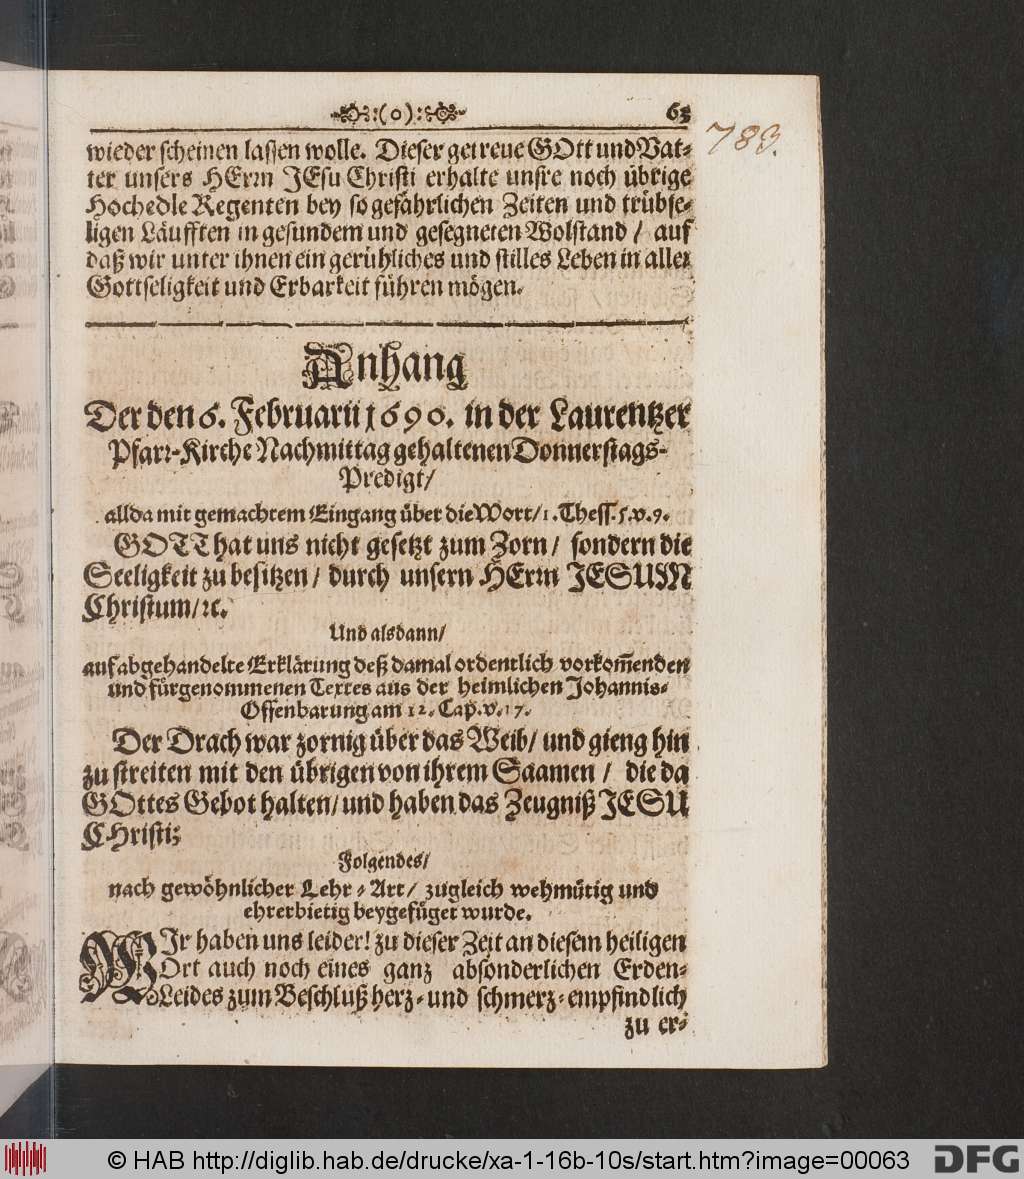 :(o): 63
783.
wieder scheinen lassen wolle. Dieser getreue GOtt und Vat-
ter unsers HErrn JEsu Christi erhalte unsre noch übrige
Hochedle Regenten bey so gefährlichen Zeiten und trübse-
ligen Läufften in gesundem und gesegneten Wolstand / auf
daß wir unter ihnen ein gerühliches und stilles Leben in aller
Gottseligkeit und Erbarkeit führen mögen.
Anhang
Der den 6. Februarii 1690. in der Laurentzer
Pfarr-Kirche Nachmittag gehaltenen Donnerstags-
Predigt/
allda mit gemachtem Eingang über die Wort/ 1. Thess. 5. v. 9.
GOTT hat uns nicht gesetzt zum Zorn / sondern die
Seeligkeit zu besitzen / durch unsern HErrn JESUM
Christum/ ꝛc.
Und alsdann/
auf abgehandelte Erklärung deß damal ordentlich vorkom̅enden
und fürgenommenen Textes aus der heimlichen Johannis-
Offenbarung am 12. Cap. v. 17.
Der Drach war zornig über das Weib/ und gieng hin
zu streiten mit den übrigen von ihrem Saamen / die da
GOttes Gebot halten/ und haben das Zeugniß JESU
CHristi;
Folgendes/
nach gewöhnlicher Lehr-Art/ zugleich wehmütig und
ehrerbietig beygefüget wurde.
WIr haben uns leider! zu dieser Zeit an diesem heiligen
Ort auch noch eines ganz absonderlichen Erden-
Leides zum Beschluß herz- und schmerz-empfindlich
zu er-
© HAB http://diglib.hab.de/drucke/xa-1-16b-10s/start.htm?image=00063
DFG